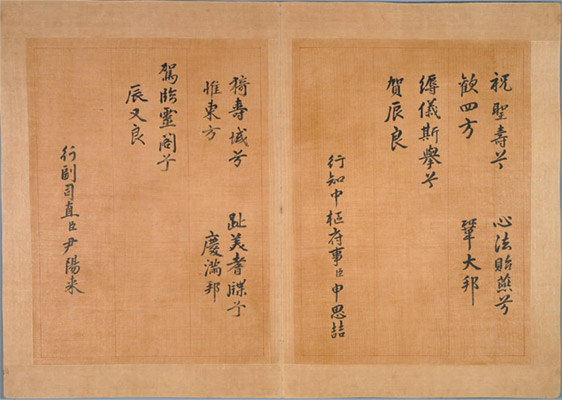 祝聖壽兮 心法貽燕兮
歡四方 鞏大邦
縟儀斯擧兮
賀辰良
行知中枢府事臣申思喆
猗壽域兮 趾美耆牒兮
惟東方 慶滿邦
駕臨靈閣兮
辰又良
行副司直臣尹陽来